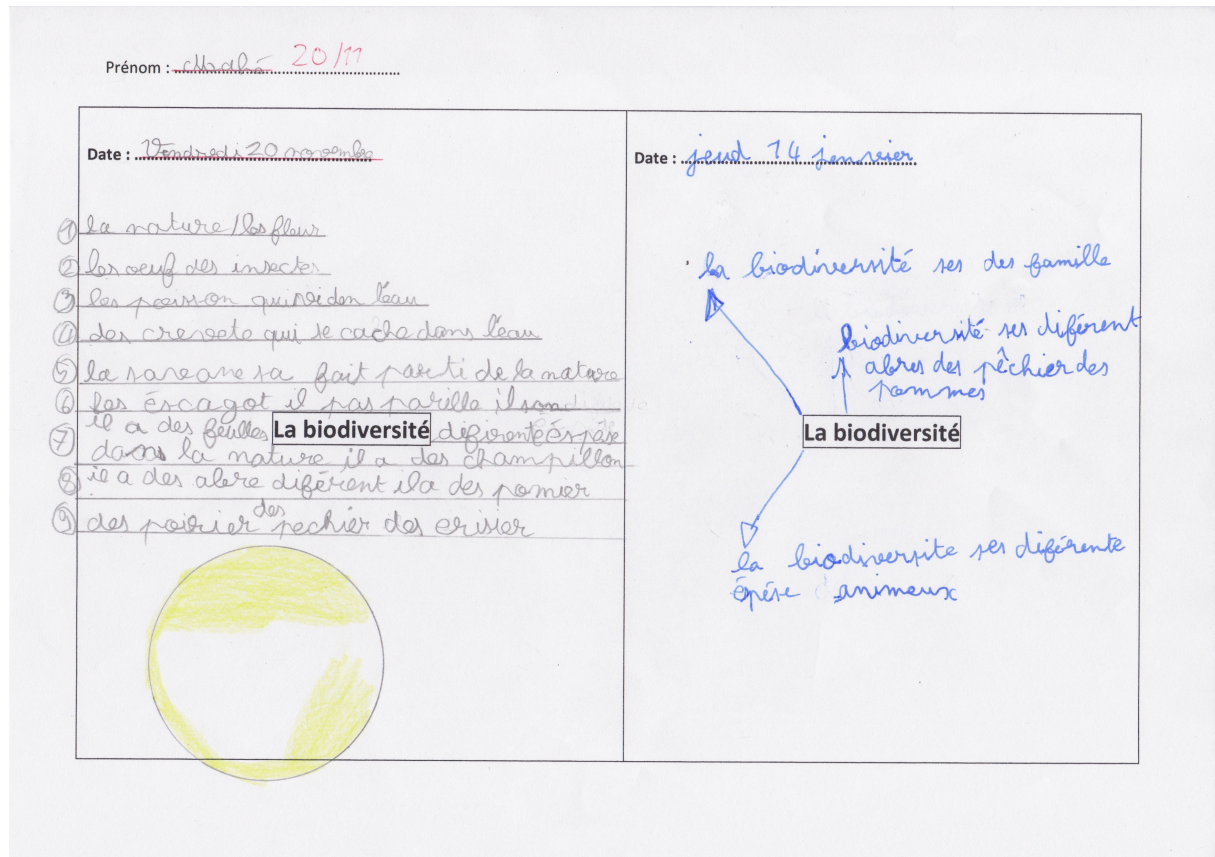 Prénom : 20/11
Date : Vendredi 20 novembre
① la nature/les fleur
② les oeuf des insectes
③ les poisson qui vi den l'eau
④ des creveté qui se cache dans l'eau
⑤ la savane sa fait parti de la nature
⑥ les éscagot il pas parille il son
il a des feulles diférente éspése
La biodiversité
⑦ dans la nature il a des champillon
⑧ il a des abre diférent il a des pomier
⑨ des poirier des pechier des erisier
Date : jeud 14 jenvier
la biodiversité ses des famille
biodiversité ses diférent
abres des pêchier des
pommes
La biodiversité
la biodiversite ses diférente
épése animeux